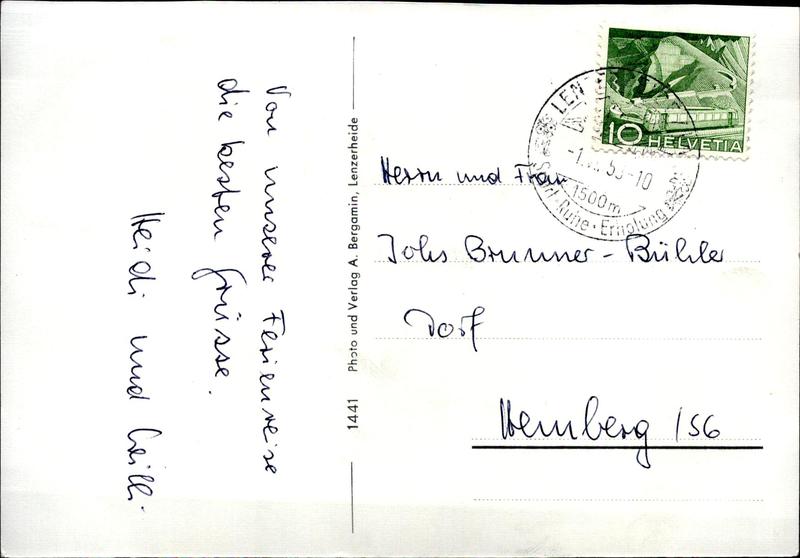 Von unserer Ferienreise
die besten Grüsse.
Heidi und Willi.
1441 Photo und Verlag A. Bergamin, Lenzerheide
10 HELVETIA
-10
1500m
Sport · Ruhe · Erholung
Herrn und Frau
Johs Brunner-Bühler
Dorf
Hemberg /SG